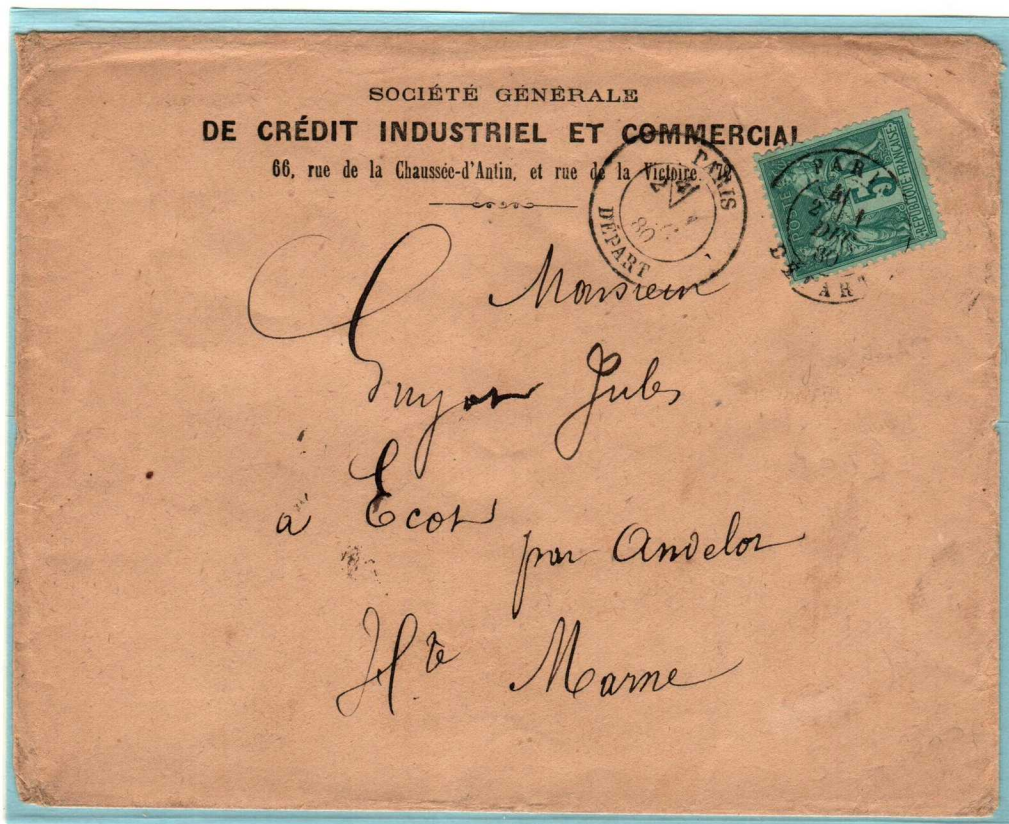 SOCIÉTÉ GÉNÉRALE
DE CRÉDIT INDUSTRIEL ET COMMERCIAL
66, rue de la Chaussée-d'Antin, et rue de la Victoire.
PARIS
80
DÉPART
5
REPUBLIQUE FRANÇAISE
PARIS
2
DEC
80
DEPART
Monsieur
Guyot Jules
à Ecot
par Andelot
Hte Marne